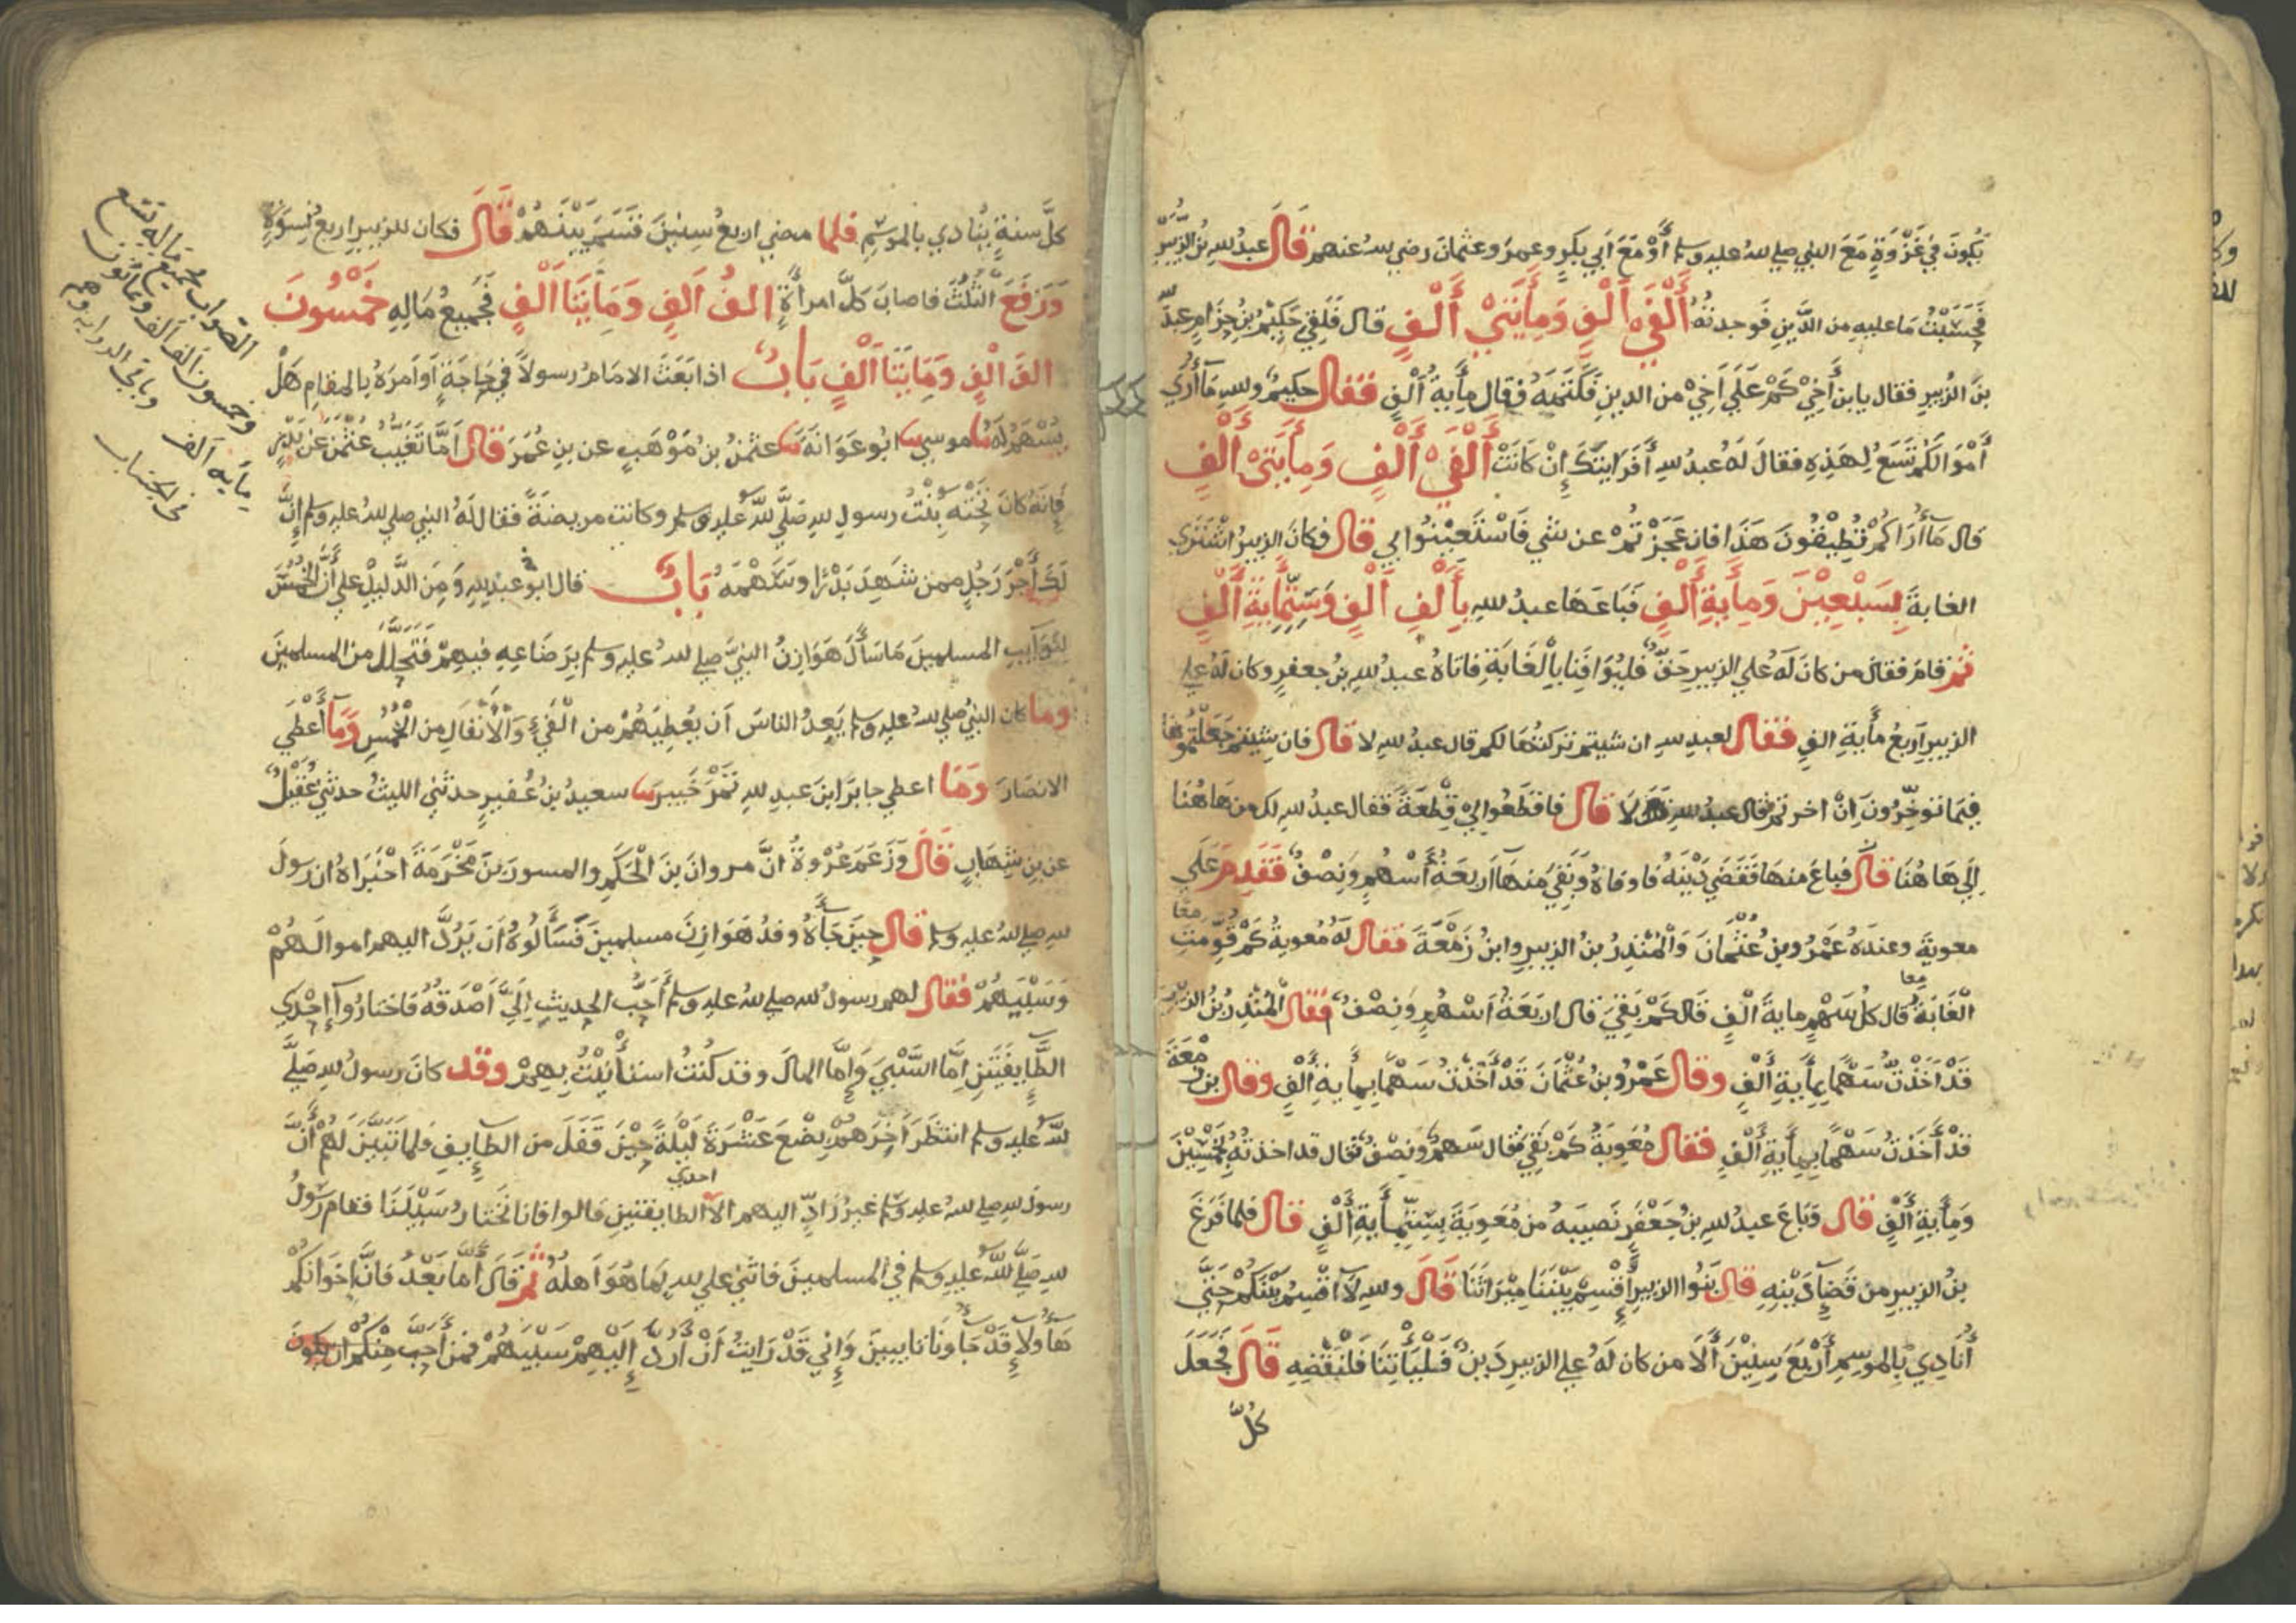 يكون في غزوة مع النبي صلى الله عليه وسلم أو مع أبي بكر وعمر وعثمان رضي الله عنهم قال عبد الله بن الزبير
فحسبت ما عليه من الدين فوجدته ألفي ألف ومأيتي ألف قال فلقي حكيم بن حزام عبد الله
بن الزبير فقال يا بن أخي كم على أخي من الدين فكتمه وقال مأية ألف فقال حكيم والله ما أرى
أموالكم تسع لهذه فقال له عبد الله أفرأيتك إن كانت ألفي ألف ومأيتي ألف
قال ما أراكم تطيقون هذا فان عجزتم عن شي فاستعينوا بي قال وكان الزبير اشترى
الغابة بسبعين ومأية ألف فباعها عبد الله بألف ألف وستمأية ألف
ثم قام فقال من كان له على الزبير حق فليوافنا بالغابة فاتاه عبد الله بن جعفر وكان له على
الزبير أربع مأية الف فقال لعبد الله ان شيتم تركتها لكم قال عبد الله لا قال فان شيتم جعلتموها
فيما توخرون إن اخرتم فقال عبد الله لا قال فاقطعوا لي قطعة فقال عبد الله لك من هاهنا
إلى هاهنا قال فباع منها فقضى دينه فاوفاه وبقي منها أربعة أسهم ونصف فقدم على
معوية وعنده عمرو بن عثمان والمنذر بن الزبير وابن زمعة فقال له معوية كم قومت
معا
الغابة قال كل سهم ماية ألف قال كم بقي قال اربعة اسهم ونصف فقال المنذر بن الزبير
معا
قد أخذت سهما بمأية ألف وقال عمرو بن عثمان قد أخذت سهما بمأية ألف وقال بن زمعة
قد أخذت سهما بمأية ألف فقال معوية كم بقي فقال سهم ونصف قال قد اخذته بخمسين
ومأية ألف قال وباع عبد الله بن جعفر نصيبه من معوية بستمأية ألف قال فلما فرغ
بن الزبير من قضاء دينه قال بنوا الزبير أقسم بيننا ميراثنا قال والله لا اقسم بينكم حتى
أنادي بالموسم أربع سنين ألا من كان له على الزبير دين فليأتنا فلنقضه قال فجعل
كل
كل سنة ينادي بالموسم فلما مضى اربع سنين قسم بينهم قال فكان للزبير اربع نسوة
ورفع الثلث فاصاب كل امرأة الف الف ومايتا ألف فجميع ماله خمسون
الف الف ومايتا ألف باب اذا بعث الامام رسولا في حاجة أو أمره بالمقام هل
يسهم له نا موسى نا ابو عوانة نا عثمن بن موهب عن بن عمر قال أما تغيب عثمن عن بدر
فإنه كان تحته بنت رسول الله صلى الله عليه وسلم وكانت مريضة فقال له النبي صلى الله عليه وسلم إن
لك أجر رجل ممن شهد بدرا وسهمه باب قال ابو عبد الله ومن الدليل على أن الخمس
لنوايب المسلمين ما سأل هوازن النبي صلى الله عليه وسلم برضاعه فيهم فتحلل من المسلمين
وما كان النبي صلى الله عليه وسلم يعد الناس أن يعطيهم من الفيء والأنفال من الخمس وما أعطى
الانصار وما اعطى جابر ابن عبد الله تمر خيبر نا سعيد بن عفير حدثني الليث حدثني عقيل
عن بن شهاب قال وزعم عروة ان مروان بن الحكم والمسور بن مخرمة أخبراه ان رسول
الله صلى الله عليه وسلم قال حين جاءه وفد هوازن مسلمين فسألوه أن يرد اليهم اموالهم
وسبيهم فقال لهم رسول الله صلى الله عليه وسلم أحب الحديث إلي أصدقه فاختاروا إحدى
الطايفتين إما السبي وإما المال وقد كنت استأنيت بهم وقد كان رسول الله صلى
الله عليه وسلم انتظر آخرهم بضع عشرة ليلة حين قفل من الطايف فلما تبين لهم أن
احدى
رسول الله صلى الله عليه وسلم غير راد اليهم الا الطايفتين قالوا فانا نختار سبينا فقام رسول
الله صلى الله عليه وسلم في المسلمين فاثنى على الله بما هو أهله ثم قال أما بعد فان إخوانكم
هاولاء قد جاونا تايبين وإني قد رايت أن أرد إليهم سبيهم فمن أحب منكم ان يكون
الصواب جميع ماله تسع
وخمسون الف الف وثمانون
ماية ألف وباقي الرواية وهم
من الحساب